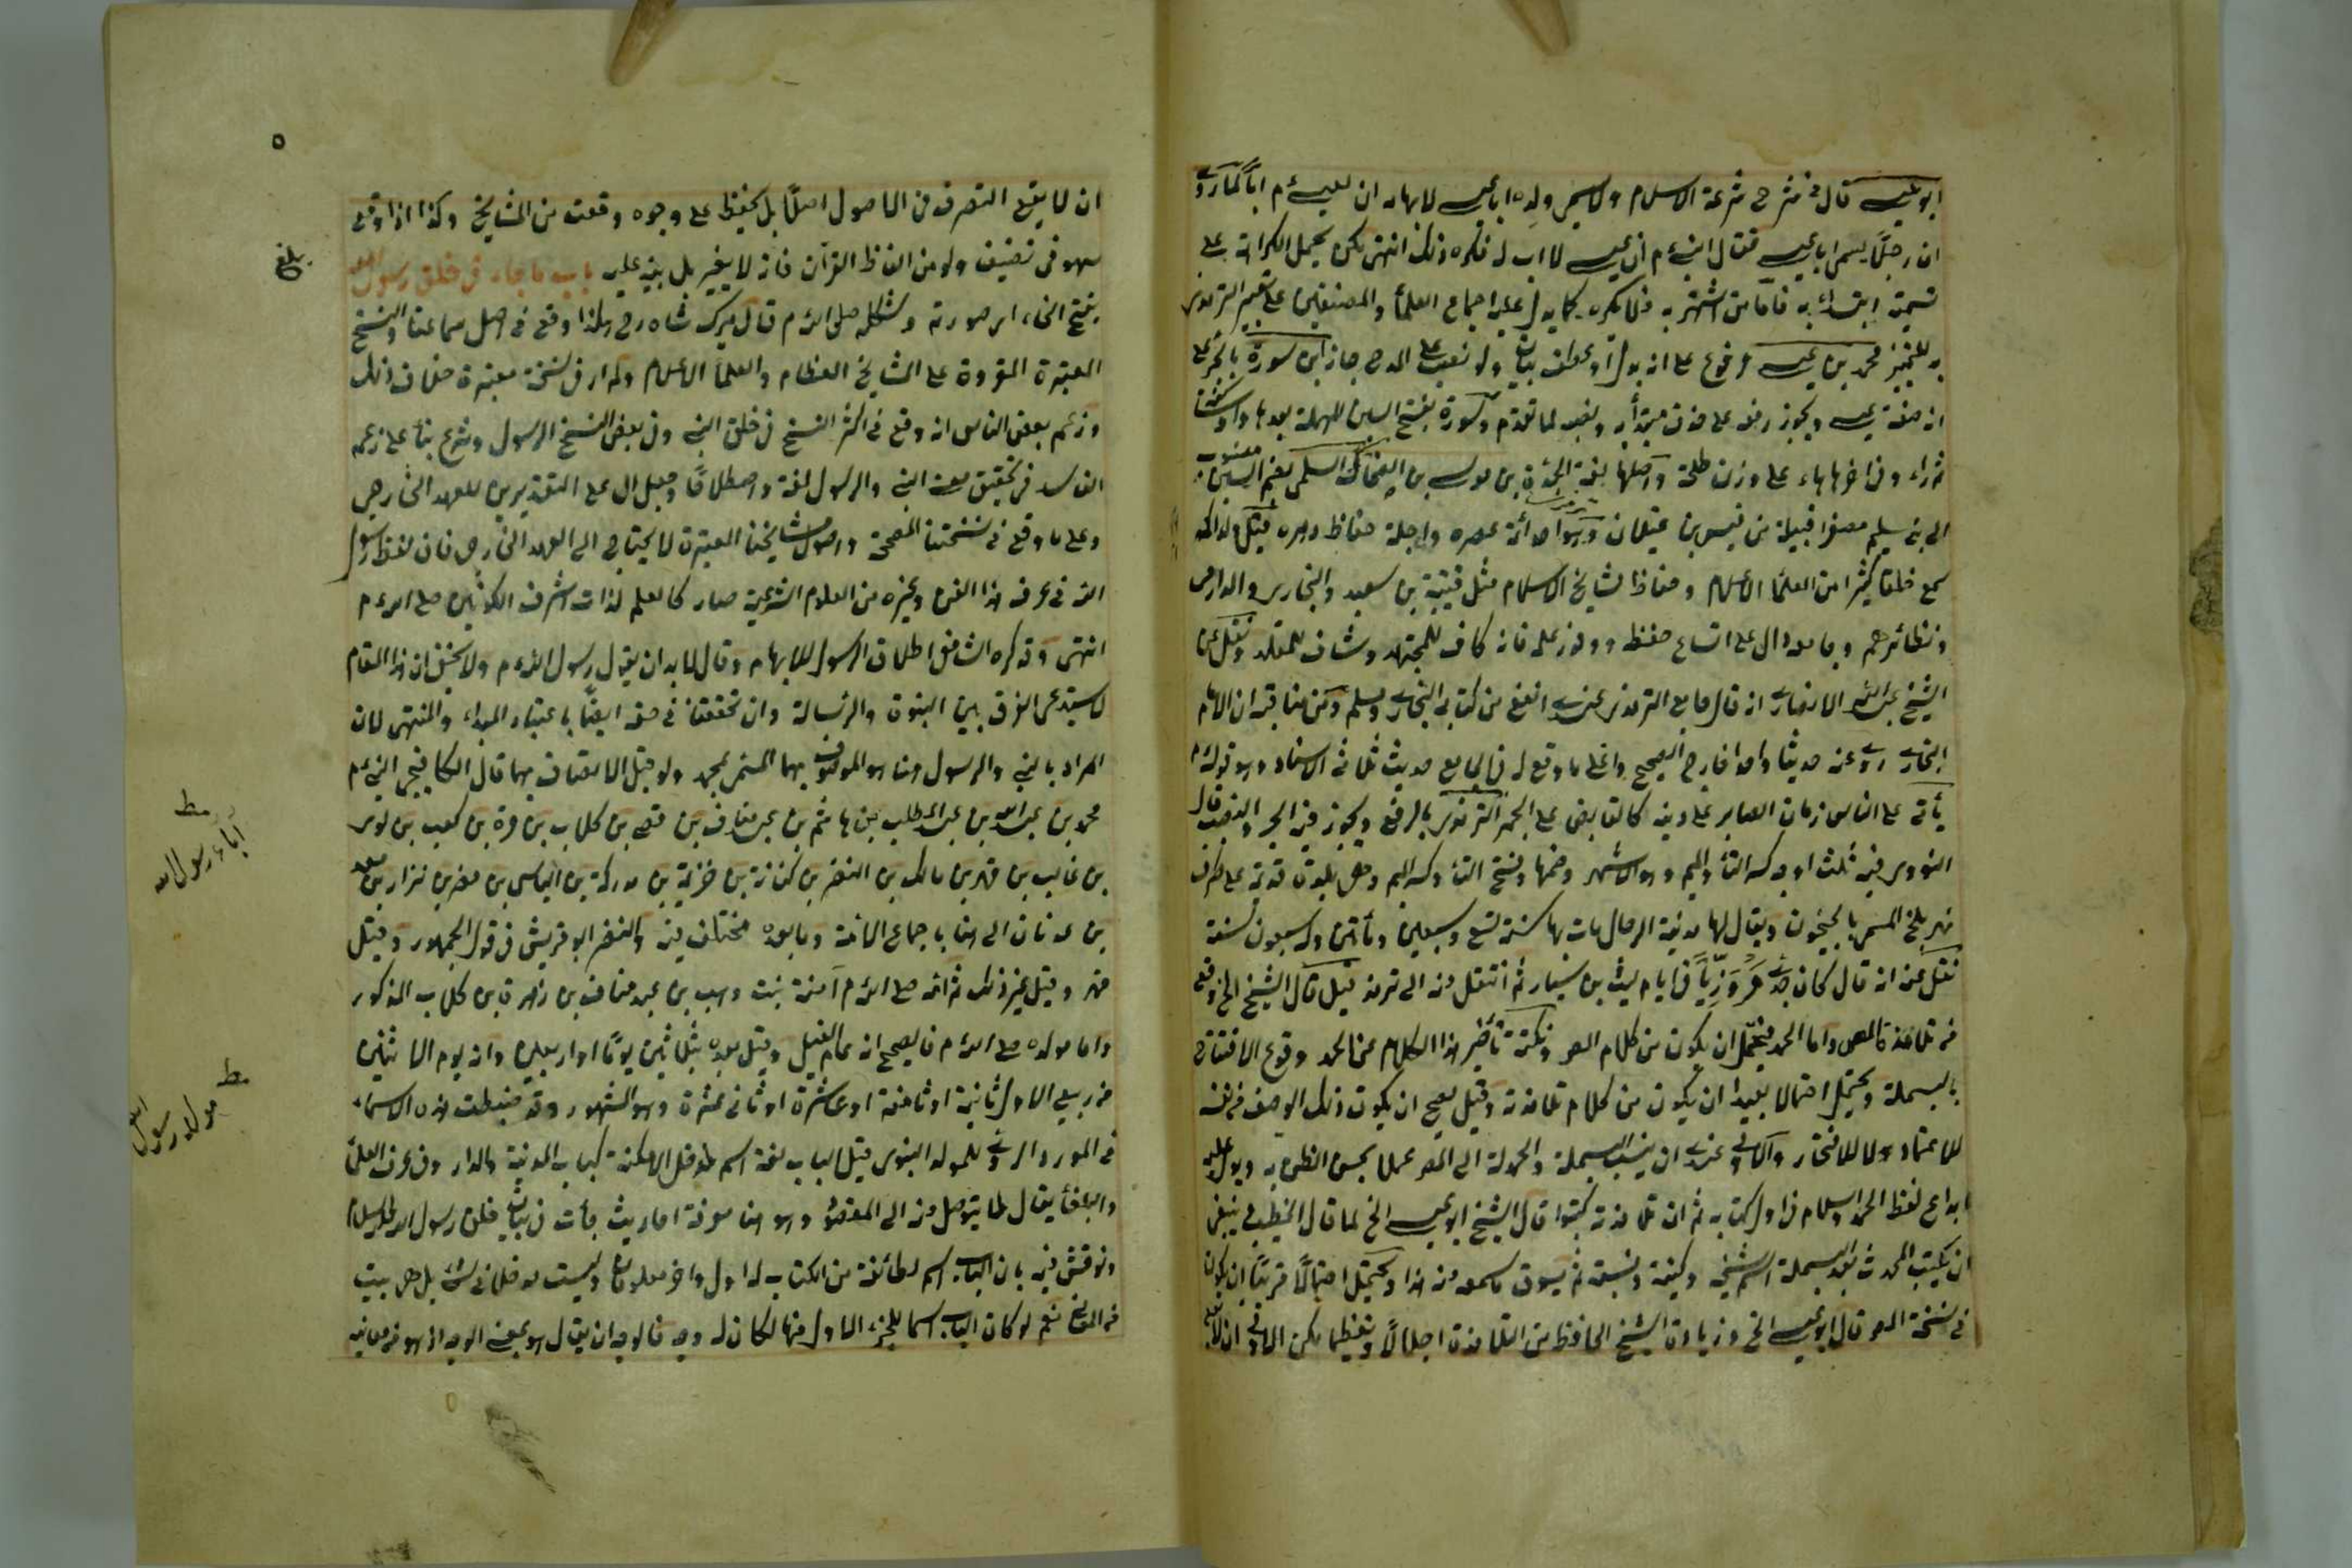 ابو عيسى قال في شرح شرعة الاسلام ولا يسمي ولده ابا عيسى لايهامه ان لعيسى م ابا كما روى
ان رجلا يسمى ابا عيسى فقال النبي م ان عيسى لا اب له فكره ذلك انتهى لكن يحمل الكراهة على
تسميته ابتداء به فاما من اشتهر به فلا يكره كما يدل عليه اجماع العلماء والمصنفين على تعبير الترمذي
به للتمييز محمد بن عيسى مرفوع على انه بدل او عطف بيان ولو نصب على المدح جاز ابن سورة بالجر على
انه صفة عيسى ويجوز رفعه على حذف مبتدأ ونصبه لما تقدم وسورة بفتح السين المهملة بعدها واو ساكنة
ثم راء وفي اخرها هاء على وزن طلحة واصلها لغة الحدة بن موسى بن الضحاك السلمي بضم السين منسوب
الى بني سليم مصغرا قبيلة من قيس بن عيلان وهو احد ائمة عصره واجلة حفاظ دهره قيل ولد اكمه
سمع خلقا كثيرا من العلماء الاعلام وحفاظ مشايخ الاسلام مثل قتيبة بن سعيد والبخاري والدارمي
ونظائرهم وجامعه دال على اتساع حفظه ووفور علمه فانه كاف للمجتهد وشاف للمقلد ونقل عن
الشيخ عبد الله الانصاري انه قال جامع الترمذي عندي انفع من كتابي البخاري ومسلم ومن مناقبه ان الامام
البخاري روى عنه حديثا واحدا خارج الصحيح واعلى ما وقع له في الجامع حديث ثلاثي الاسناد وهو قوله م
يأتي على الناس زمان الصابر على دينه كالقابض على الجمر الترمذي بالرفع ويجوز فيه الجر والنصب قال
النووي فيه ثلث اوجه كسر التاء والميم وهو الاشهر وضمها وفتح التاء وكسر الميم وهي بلدة قديمة على طرف
نهر بلخ المسمى بالجيحون ويقال لها مدينة الرجال مات بها سنة تسع وسبعين ومأتين وله سبعون سنة
نقل عنه انه قال كان جدي مروزيا في ايام ليث بن سيار ثم انتقل منه الى ترمذ قيل قال الشيخ الخ وقع
من تلامذة المص واما الحمد فيحتمل ان يكون من كلام المص ونكتة تأخير هذا الكلام عن الحمد وقوع الافتتاح
بالبسملة ويحتمل احتمالا بعيدا ان يكون من كلام تلامذته وقيل يصح ان يكون ذلك الوصف من نفسه
للاعتماد لا للافتخار والاولى عندي ان ينسب البسملة والحمدلة الى المص عملا بحسن الظن به ويدل عليه
ابداع لفظ الحمد والسلام في اول كتابه ثم ان تلامذته كتبوا قال الشيخ ابو عيسى الخ لما قال الخطيب ينبغي
ان يكتب المحدث بعد البسملة اسم شيخه وكنيته ونسبته ثم يسوق ما سمعه منه هذا ويحتمل احتمالا قريبا ان يكون
في نسخة المص قال ابو عيسى الخ وزيادة الشيخ الحافظ من التلامذة اجلالا وتعظيما لكن الاولى ان لا
ان لا يقع التصرف في الاصول اصلا بل يحفظ على وجوه وقعت من المشايخ وكذا اذا وقع
سهو في تصنيف ولو من الفاظ القرآن فانه لا يغير بل ينبه عليه باب ما جاء في خلق رسول الله
بفتح الخاء اي صورته وشكله صلى الله م قال ميرك شاه رح هكذا وقع في اصل سماعنا والنسخ
المعتبرة المقروة على المشايخ العظام والعلماء الاعلام ولم ار في نسخة معتبرة خلاف ذلك
وزعم بعض الناس انه وقع في اكثر النسخ في خلق النبي وفي بعض النسخ الرسول وشرع بناء على زعمه
الفاسد في تحقيق معنى النبي والرسول لغة واصطلاحا وجعل ال على التقديرين للعهد الخارجي
وعلى ما وقع في نسختنا المصححة واصول مشايخنا المعتبرة لا يحتاج الى العهد الخارجي فان لفظ رسول
الله في عرف هذا الفن وغيره من العلوم الشرعية صار كالعلم لذات اشرف الكونين صلى الله م
انتهى وقد كره الشافعي اطلاق الرسول للايهام وقال لا بد ان يقول رسول الله م ولا يخفى ان هذا المقام
لا يستدعي الفرق بين النبوة والرسالة وان تحققتا في حقه ايضا باعتبار المبداء والمنتهى لان
المراد بالنبي والرسول هنا هو الموصوف بهما المسمى بمحمد ولو قبل الاتصاف بهما قال الكافيجي النبي م
محمد بن عبد الله بن عبد المطلب بن هاشم بن عبد مناف بن قصي بن كلاب بن مرة بن كعب بن لوي
بن غالب بن فهر بن مالك بن النضر بن كنانة بن خزيمة بن مدركة بن الياس بن مضر بن نزار بن معد
بن عدنان الى هنا باجماع الامة وما بعده مختلف فيه والنضر ابو قريش في قول الجمهور وقيل
فهر وقيل غير ذلك ثم امه صلى الله م آمنة بنت وهب بن عبد مناف بن زهرة بن كلاب المذكور
واما مولده صلى الله م فالصحيح انه عام الفيل وقيل بعده بثلاثين يوما او اربعين وانه يوم الاثنين
من ربيع الاول ثانيه او ثامنه او عاشره او ثاني عشره وهو المشهور وقد ضبطت هذه الاسماء
في المورد الروي للمولد النبوي قيل الباب لغة اسم لمدخل الامكنة كباب المدينة والدار وفي عرف العلماء
والبلغاء يقال لما يتوصل منه الى المقصود وهو هنا معرفة احاديث جاءت في بيان خلق رسول الله عليه السلام
ونوقش فيه بان الباب اسم لطائفة من الكتاب له اول واخر معلومان وليست مدخلا في شئ بل هي بيت
من المعاني نعم لو كان الباب اسما للجزء الاول منها لكان له وجه فالوجه ان يقال هو بمعنى الوجه اذ هو من معانيه
٥
بلغ
مط
اباء رسول الله
مط
مولد رسول الله